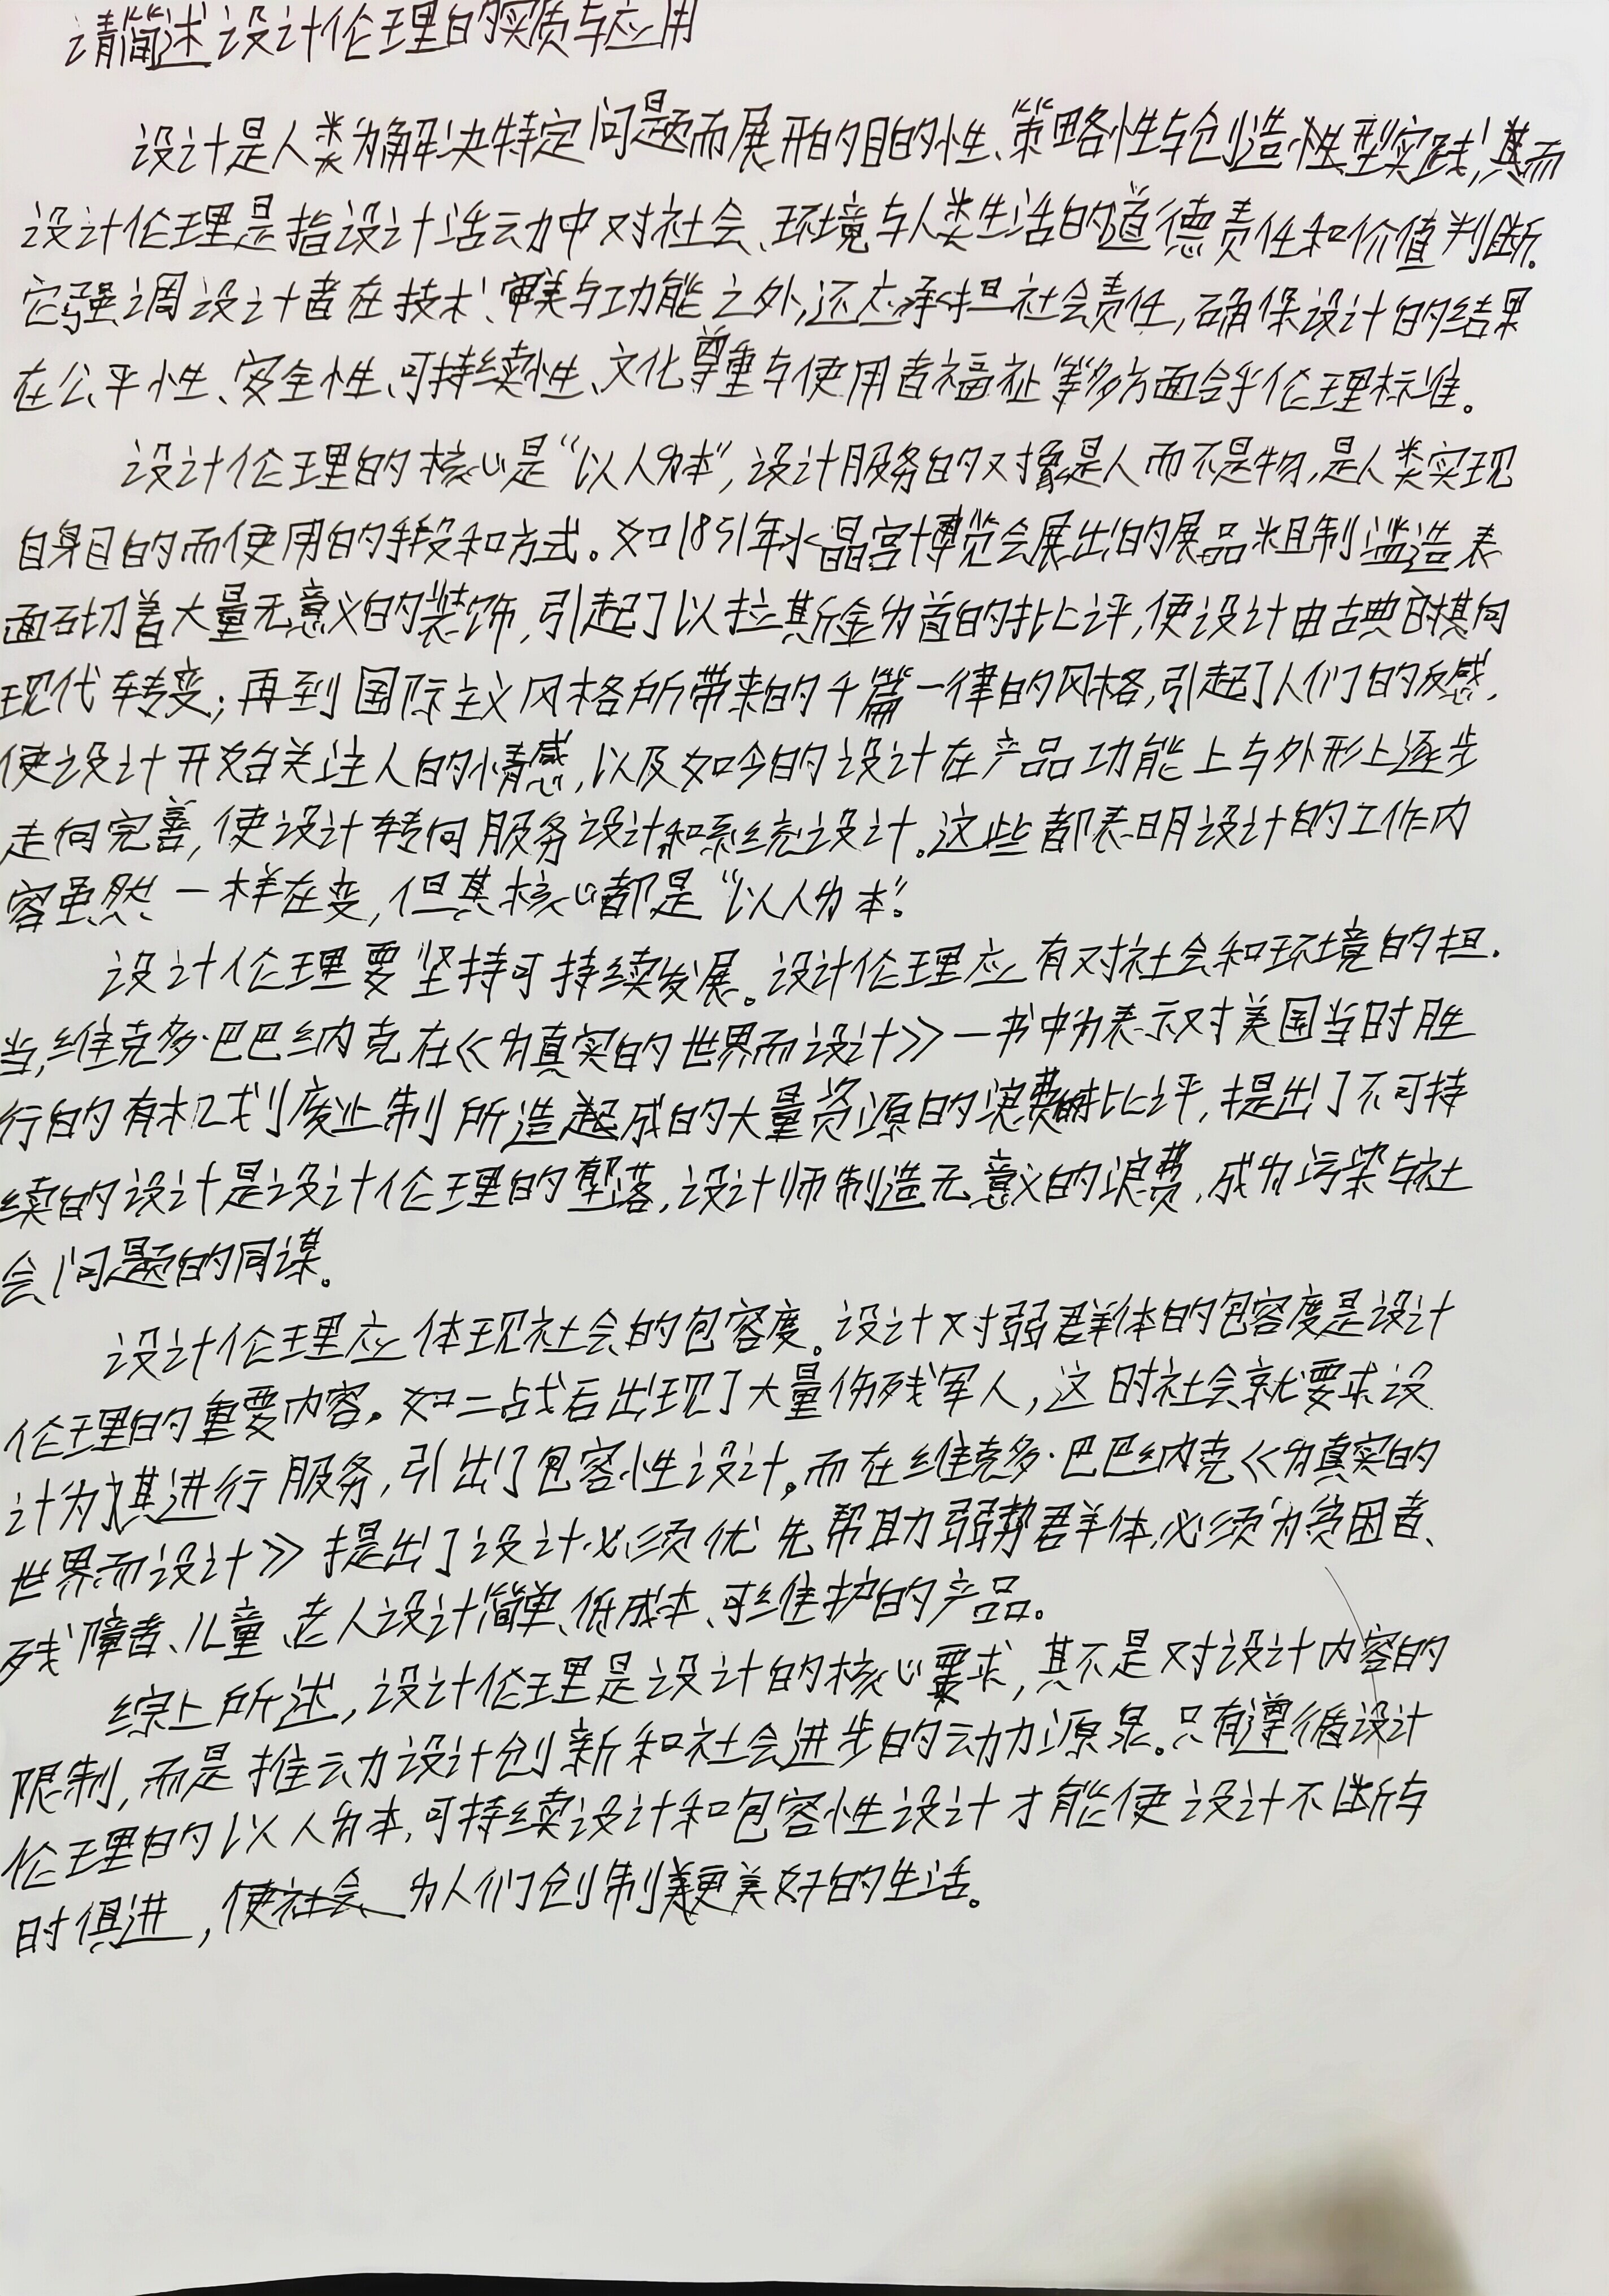 请简述设计伦理的实质与应用
设计是人类为解决特定问题而展开的目的性、策略性与创造性型实践,其而
设计伦理是指设计活动中对社会、环境与人类生活的道德责任和价值判断。
它强调设计者在技术、审美与功能之外,还应承担社会责任,确保设计的结果
在公平性、安全性、可持续性、文化尊重与使用者福祉等多方面合乎伦理标准。
设计伦理的核心是“以人为本”,设计服务的对象是人而不是物,是人类实现
自身目的而使用的手段和方式。如1851年水晶宫博览会展出的展品粗制滥造表
面砌着大量无意义的装饰,引起了以拉斯金为首的批评,使设计由古典向
现代转变;再到国际主义风格所带来的千篇一律的风格,引起了人们的反感,
使设计开始关注人的情感,以及如今的设计在产品功能上与外形上逐步
走向完善,使设计转向服务设计和系统设计。这些都表明设计的工作内
容虽然一样在变,但其核心都是“以人为本”。
设计伦理要坚持可持续发展。设计伦理应有对社会和环境的担
当,维克多·巴巴纳克在《为真实的世界而设计》一书中为表示对美国当时胜
行的有机划废止制所造成的大量资源的浪费批评,提出了不可持
续的设计是设计伦理的堕落,设计师制造无意义的浪费,成为污染与社
会问题的同谋。
设计伦理应体现社会的包容度。设计对弱群体的包容度是设计
伦理的重要内容。如二战后出现了大量伤残军人,这时社会就要求设
计为其进行服务,引出了包容性设计。而在维克多·巴巴纳克《为真实的
世界而设计》提出了设计必须优先帮助弱势群体,必须为贫困者、
残障者、儿童、老人设计简单、低成本、可维护的产品。
综上所述,设计伦理是设计的核心要求,其不是对设计内容的
限制,而是推动设计创新和社会进步的动力源泉。只有遵循设计
伦理的以人为本,可持续设计和包容性设计才能使设计不断与
时俱进,使社会为人们创制更美好的生活。